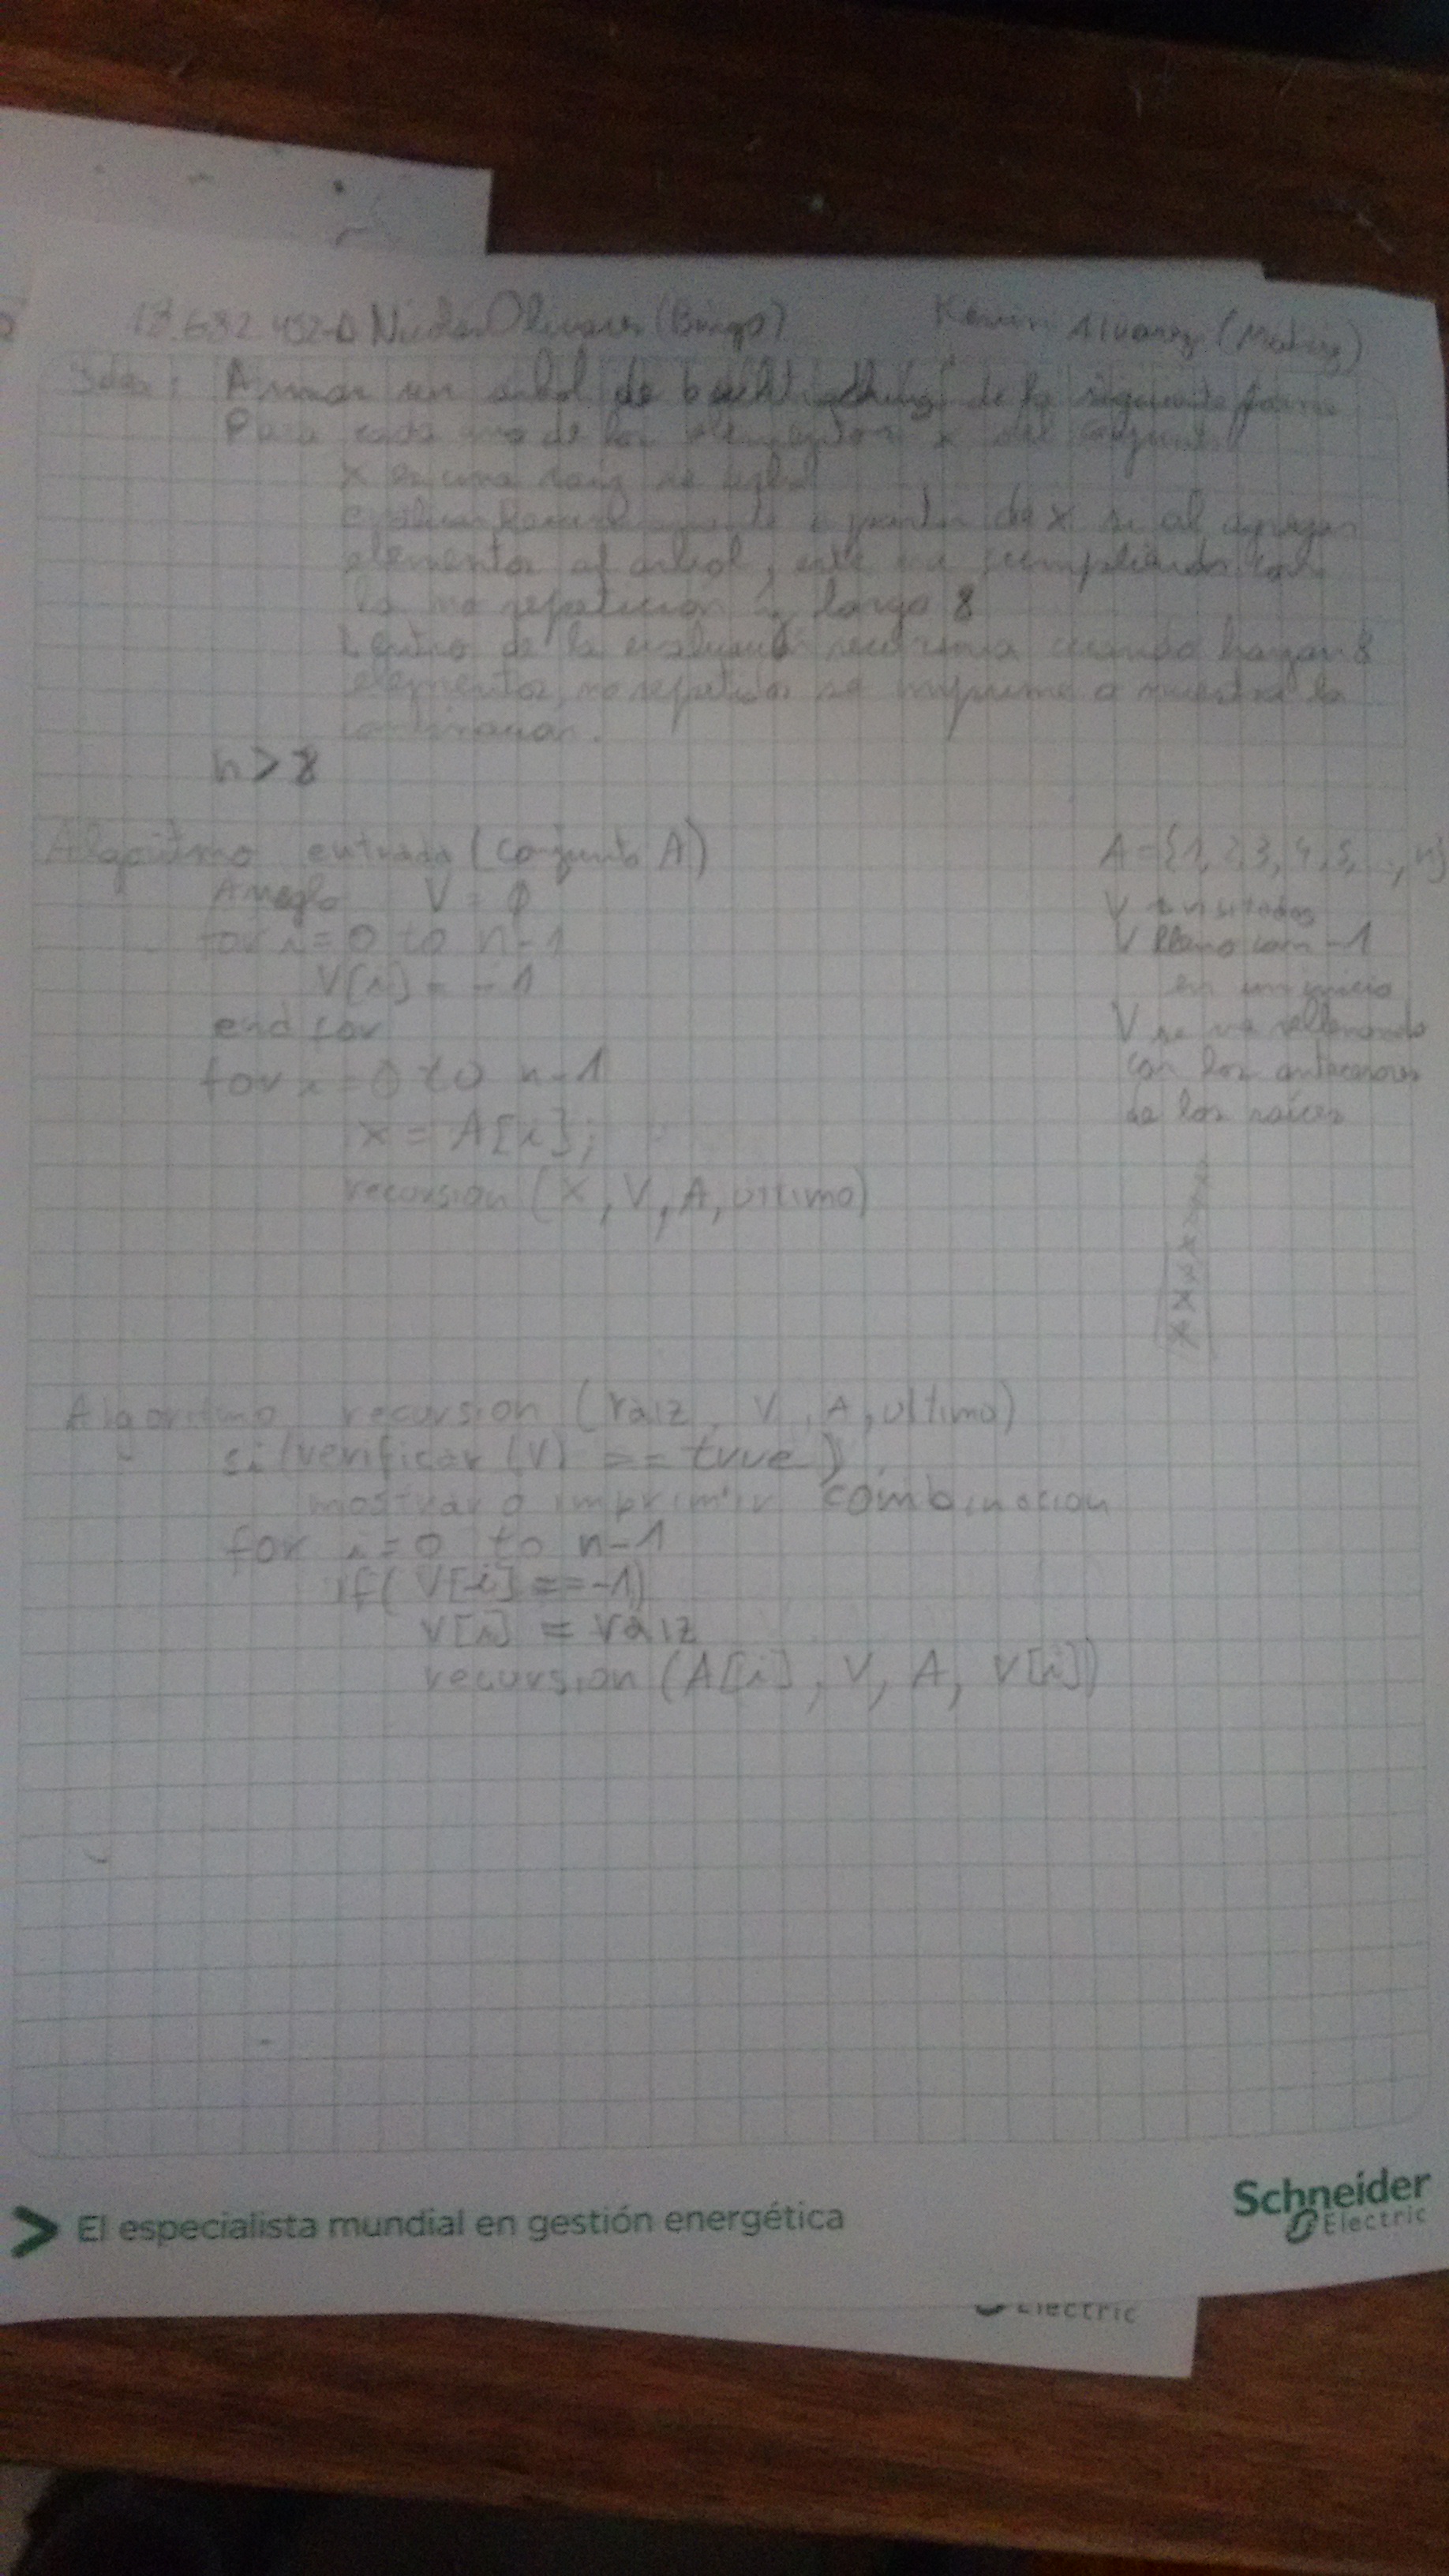 Nicolás Olivares (Bingo) Kevin Alvarez (Matraz)
Idea: Armar un arbol de backtracking de la siguiente forma
Para cada uno de los elementos x del conjunto
x es una raiz de arbol
a partir de x si al agregar
elementos al arbol, este va cumpliendo con
la no repeticion y largo 8
Dentro de la evaluacion recursiva cuando hayan 8
elementos, no repetidos se imprime o muestra la
combinacion.
n > 8
Algoritmo entrada (conjunto A)
Arreglo V = ϕ
for i = 0 to n-1
V[i] = -1
end for
for i = 0 to n-1
x = A[i];
recursion (X, V, A, ultimo)
A = {1, 2, 3, 4, 5, ..., n}
V visitados
V lleno con -1
en un inicio
V se va rellenando
con los antecesores
de los raices
Algoritmo recursion (raiz, V, A, ultimo)
si (verificar (V) == true)
mostrar o imprimir combinacion
for i = 0 to n-1
if( V[i] == -1)
V[i] = raiz
recursion (A[i], V, A, V[i])
El especialista mundial en gestión energética
Schneider
Electric
Electric